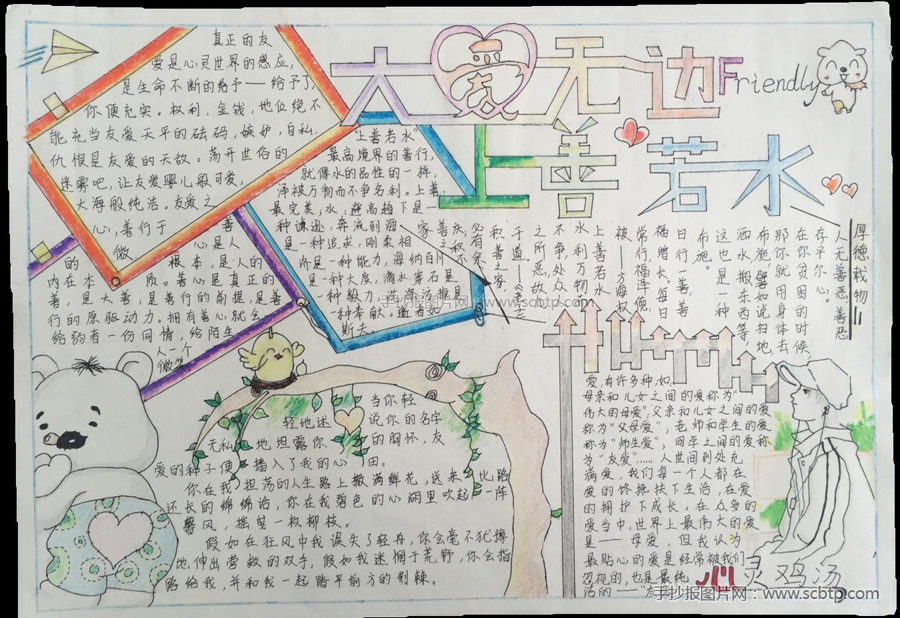 大爱无边
Friendly
上善若水
真正的友
爱是心灵世界的感应,
是生命不断的给予——给予了,
你便充实。权利、金钱、地位绝不
能充当友爱天平的砝码,嫉妒,自私,
仇恨是友爱的天敌。荡开世俗的
迷雾吧,让友爱婴儿般可爱,
大海般纯洁。友爱之
心,善行于
微
善
心是人
的
根本,是人的
内在本质。善心是真正的
善,是大善,是善行的前提,是善
行的原驱动力。拥有善心,就会
给予者一份同情,给陌生
人一个
微笑
"上善若水"
最高境界的善行,
就像水的品性的一样,
泽被万物而不争名利。上善
最完美,水:避高趋下是一
种谦逊,奔流到海
是一种追求,刚柔相
济是一种能力,海纳百川
是一种大度,滴水穿石是
一种毅力,
一种奉献。逝者如
斯夫
积善之家,
必有余庆
上善若水
水利万物而
不争,处众人
之所恶,故几
于道。
日行一善,
福增长,
常行,福泽
被。
厚德载物
人无善恶,善恶
存乎尔心。
在你贫困的时候
那你就用身体去
布施,譬如说扫地
洒水、搬东西等,
这也是一种
布施。
当你轻
轻地迷
说你的名字
无私地坦露你的胸怀,友
爱的种子便播入了我的心田。
你在我坦荡的人生路上撒满鲜花,送来比路
还长的绵绵话,你在我碧色的心湖里吹起一阵
馨风,摇曳一枚柳枝。
假如在狂风中我误失了轻舟,你会毫不犹豫
地伸出营救的双手,假如我迷惘于荒野,你会指
路给我,并和我一起踏平前方的荆棘。
爱,有许多种,如,
母亲和儿女之间的爱称为"
伟大的母爱",父亲和儿女之间的爱
称为"父母爱",老师和学生的爱
称为"师生爱",同学之间的爱称
为"友爱"……人世间到处充
满爱,我们每一个人都在
爱的搀扶下生活,在爱
的拥护下成长。在众多的
爱当中,世界上最伟大的爱
是——母爱,但我认为
最贴心的爱是经常被我们
忽视的,也是最纯
洁的——"友
心灵鸡汤
手抄报图片网:www.scbtp.com
手抄报图片网:www.scbtp.com